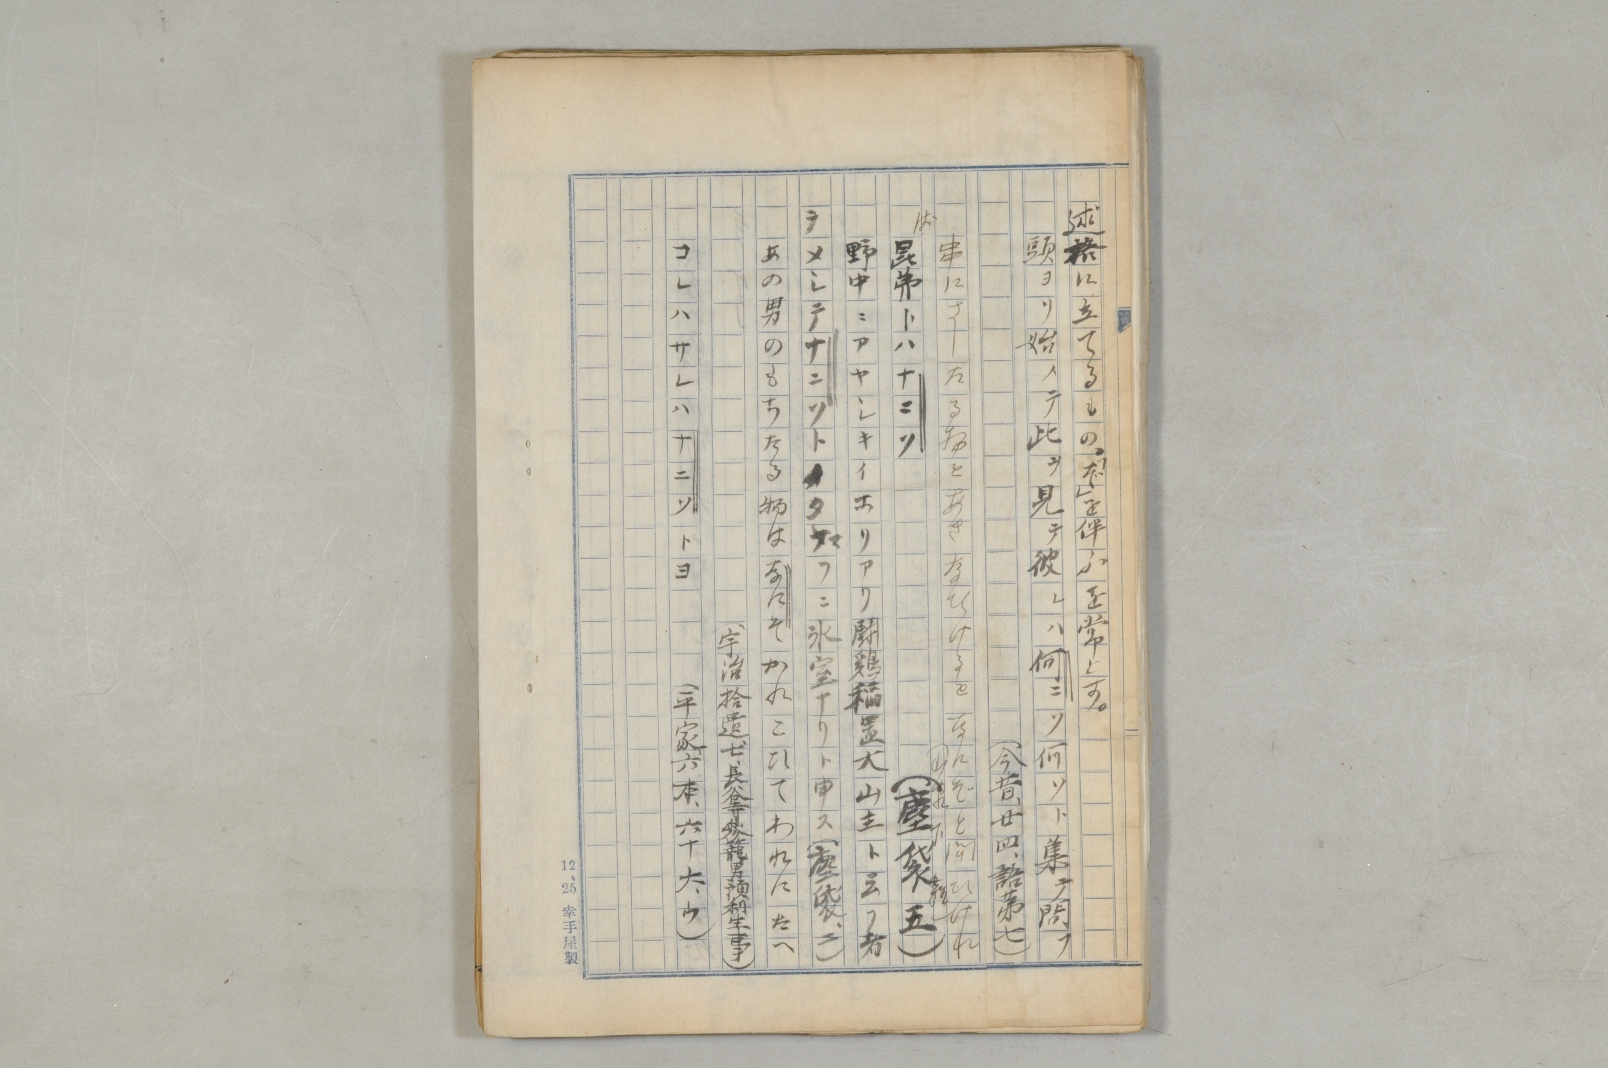 述格に立てるもの。「だ」を伴ふを常とす。
頭ヨリ始メテ此ヲ見テ彼レハ何ニソ何ソト集テ問フ
（今昔、廿四、語第七）
串にさしたる物をあきなひけるをなにぞと問ひけれ
は
昆弟トハナニソ
（塵袋五）
野中ニアヤシキイホリアリ闘鶏稲置大山主ト云フ者
ヲメシテナニソトタフニ氷室ナリト申ス（塵袋、二）
あの男のもちたる物はなにそかれこひてわれにたへ
（宇治拾遺七、長谷寺参籠男預利生事）
コレハサレハナニソトヨ
（平家六本、六十大、ウ）
12、25 幸手屋製